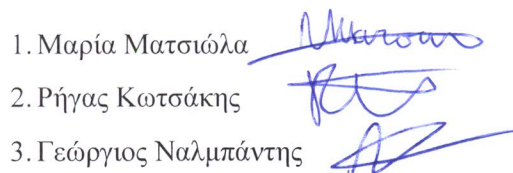 1. Μαρία Ματσιώλα
2. Ρήγας Κωτσάκης
3. Γεώργιος Ναλμπάντης